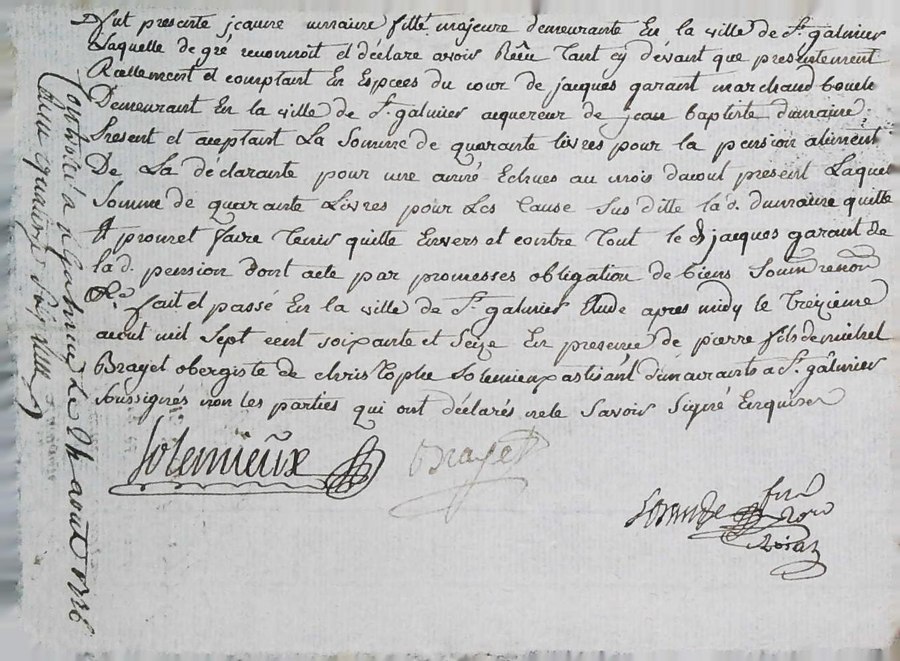 Fut presente jeanne fille majeure demeurante En la ville de St galmier
Laquelle de gré reconnoit et déclare avoir Reçu tant cy devant que presentement
Reellement et comptant En Espèces du cour de jacques garant marchand
Demeurant En la ville de St galmier aquereur de jean baptiste dumaine
Present et aceptant La Somme de quarante livres pour la pension aliment
De La déclarante pour une année Echues au mois daout present Laquel
Somme de quarante Livres pour Les Cause Sus ditte lad. dumaine quitte
Et promet faire tenir quitte Envers et contre tout le d jacques garant de
lad. pension dont acte par promesses obligation de biens Soum renon
fait et passé En la ville de St galmier Etude apres midy le treizieme
aout mil Sept cent soixante et Seize En presence de pierre fils de michel
Brayet obergiste de christophe Solemieux demeurants a St galmier
Soussignés non les parties qui ont déclarés ne le Savoir Signé Enquises
Solemieux Brayet
Controlé a St galmier Le aout